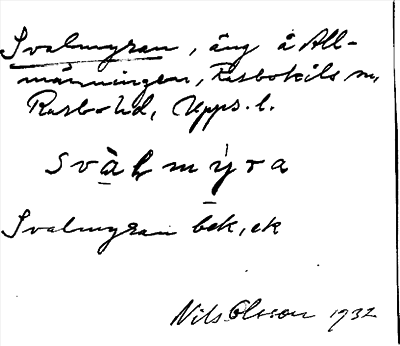 Svalmyran, äng å All-
männingen, Rasbokils sn,
Rasbo hd, Upps. l.
svàl̥mýra
Svalmyran bek, ek
Nils Olsson 1932